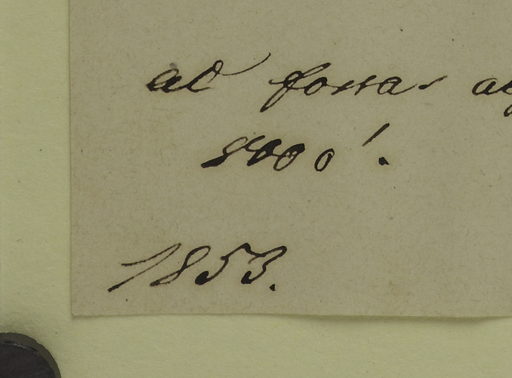 ad fossas
8000'.
1853.